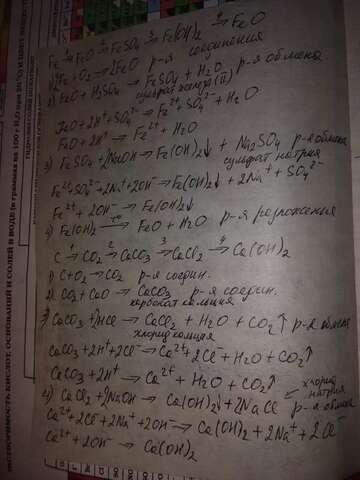 Fe →¹ FeO →² FeSO₄ →³ Fe(OH)₂ →⁴ FeO
1) 2Fe + O₂ → 2FeO р-я соединения
2) FeO + H₂SO₄ → FeSO₄ + H₂O р-я обмена
сульфат железа (II)
FeO + 2H⁺ + SO₄²⁻ → Fe²⁺ + SO₄²⁻ + H₂O
FeO + 2H⁺ → Fe²⁺ + H₂O
3) FeSO₄ + 2NaOH → Fe(OH)₂↓ + Na₂SO₄ р-я обмена
сульфат натрия
Fe²⁺ + SO₄²⁻ + 2Na⁺ + 2OH⁻ → Fe(OH)₂↓ + 2Na⁺ + SO₄²⁻
Fe²⁺ + 2OH⁻ → Fe(OH)₂↓
4) Fe(OH)₂ → FeO + H₂O р-я разложения
C →¹ CO₂ →² CaCO₃ →³ CaCl₂ →⁴ Ca(OH)₂
1) C + O₂ → CO₂ р-я соедин.
2) CO₂ + CaO → CaCO₃ р-я соедин.
карбонат кальция
3) CaCO₃ + 2HCl → CaCl₂ + H₂O + CO₂↑ р-я обмена
хлорид кальция
CaCO₃ + 2H⁺ + 2Cl⁻ → Ca²⁺ + 2Cl⁻ + H₂O + CO₂↑
CaCO₃ + 2H⁺ → Ca²⁺ + H₂O + CO₂↑
хлорид натрия
4) CaCl₂ + 2NaOH → Ca(OH)₂↓ + 2NaCl р-я обмена
Ca²⁺ + 2Cl⁻ + 2Na⁺ + 2OH⁻ → Ca(OH)₂ + 2Na⁺ + 2Cl⁻
Ca²⁺ + 2OH⁻ → Ca(OH)₂
РАСТВОРИМОСТЬ КИСЛОТ, ОСНОВАНИЙ И СОЛЕЙ В ВОДЕ (в граммах на 100 г H₂O при 20 °С) И ЦВЕТ